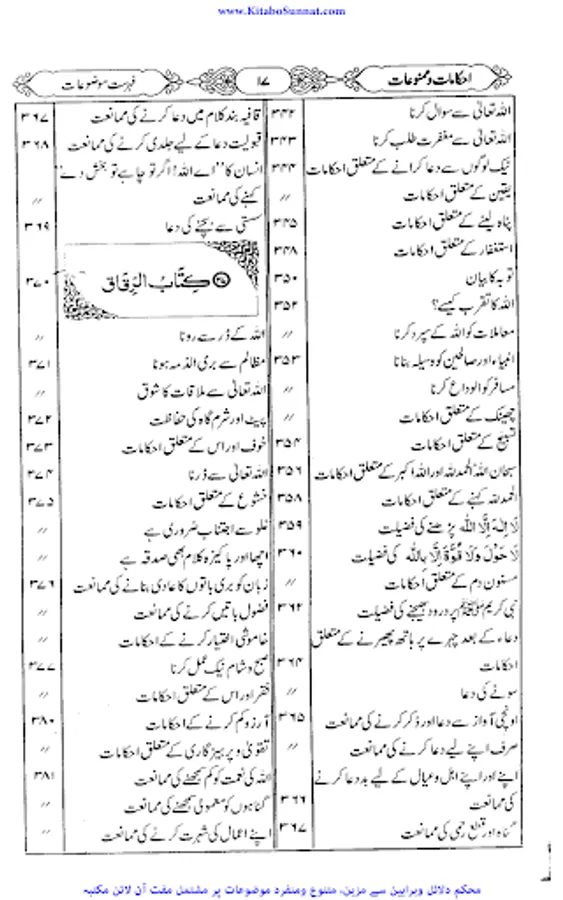 www.KitaboSunnat.com
احکامات و ممنوعات
۱۷
فہرست موضوعات
اللہ تعالیٰ سے سوال کرنا ۳۴۲
اللہ تعالیٰ سے مغفرت طلب کرنا ۳۴۳
نیک لوگوں سے دعا کرانے کے متعلق احکامات ۳۴۴
یقین کے متعلق احکامات ״
پناہ لینے کے متعلق احکامات ۳۴۵
استغفار کے متعلق احکامات ۳۴۸
توبہ کا بیان ۳۵۰
اللہ کا تقرب کیسے؟ ۳۵۲
معاملات کو اللہ کے سپرد کرنا ״
انبیاء اور صالحین کو وسیلہ بنانا ۳۵۳
مسافر کو الوداع کرنا ״
چھینک کے متعلق احکامات ״
تسبیح کے متعلق احکامات ۳۵۴
سبحان اللہ، الحمد للہ اور اللہ اکبر کے متعلق احکامات ۳۵۶
الحمد للہ کہنے کے متعلق احکامات ۳۵۸
لَا إِلٰهَ إِلَّا اللّٰه پڑھنے کی فضیلت ۳۵۹
لَا حَوْلَ وَلَا قُوَّةَ إِلَّا بِاللّٰه کی فضیلت ۳۶۰
مسنون دم کے متعلق احکامات ״
نبی کریم ﷺ پر درود بھیجنے کی فضیلت ۳۶۲
دعاء کے بعد چہرے پر ہاتھ پھیرنے کے متعلق
احکامات ۳۶۴
سونے کی دعا ״
اونچی آواز سے دعا اور ذکر کرنے کی ممانعت ۳۶۵
صرف اپنے لیے دعا کرنے کی ممانعت ״
اپنے اور اپنے اہل و عیال کے لیے بددعا کرنے
کی ممانعت ۳۶۶
گناہ اور قطع رحمی کی ممانعت ۳۶۷
قافیہ بند کلام میں دعا کرنے کی ممانعت ۳۶۷
قبولیت دعا کے لیے جلدی کرنے کی ممانعت ۳۶۸
انسان کا ”اے اللہ! اگر تو چاہے تو بخش دے“
کہنے کی ممانعت ״
سستی سے بچنے کی دعا ۳۶۹
كِتَابُ الرِّقَاق ۳۷۰
اللہ کے ڈر سے رونا ״
مظالم سے بری الذمہ ہونا ۳۷۱
اللہ تعالیٰ سے ملاقات کا شوق ״
پیٹ اور شرم گاہ کی حفاظت ۳۷۲
خوف اور اس کے متعلق احکامات ۳۷۳
اللہ تعالیٰ سے ڈرنا ۳۷۴
خشوع کے متعلق احکامات ۳۷۵
غلو سے اجتناب ضروری ہے ״
اچھا اور پاکیزہ کلام بھی صدقہ ہے ״
زبان کو بری باتوں کا عادی بنانے کی ممانعت ۳۷۶
فضول باتیں کرنے کی ممانعت ״
خاموشی اختیار کرنے کے احکامات ״
صبح و شام نیک عمل کرنا ۳۷۷
فقر اور اس کے متعلق احکامات ״
آرزو کم کرنے کے احکامات ۳۸۰
تقویٰ و پرہیز گاری کے متعلق احکامات ״
اللہ کی نعمت کو کم سمجھنے کی ممانعت ۳۸۱
گناہوں کو معمولی سمجھنے کی ممانعت ״
اپنے اعمال کی شہرت کرنے کی ممانعت ״
محکم دلائل وبراہین سے مزین، متنوع ومنفرد موضوعات پر مشتمل مفت آن لائن مکتبہ